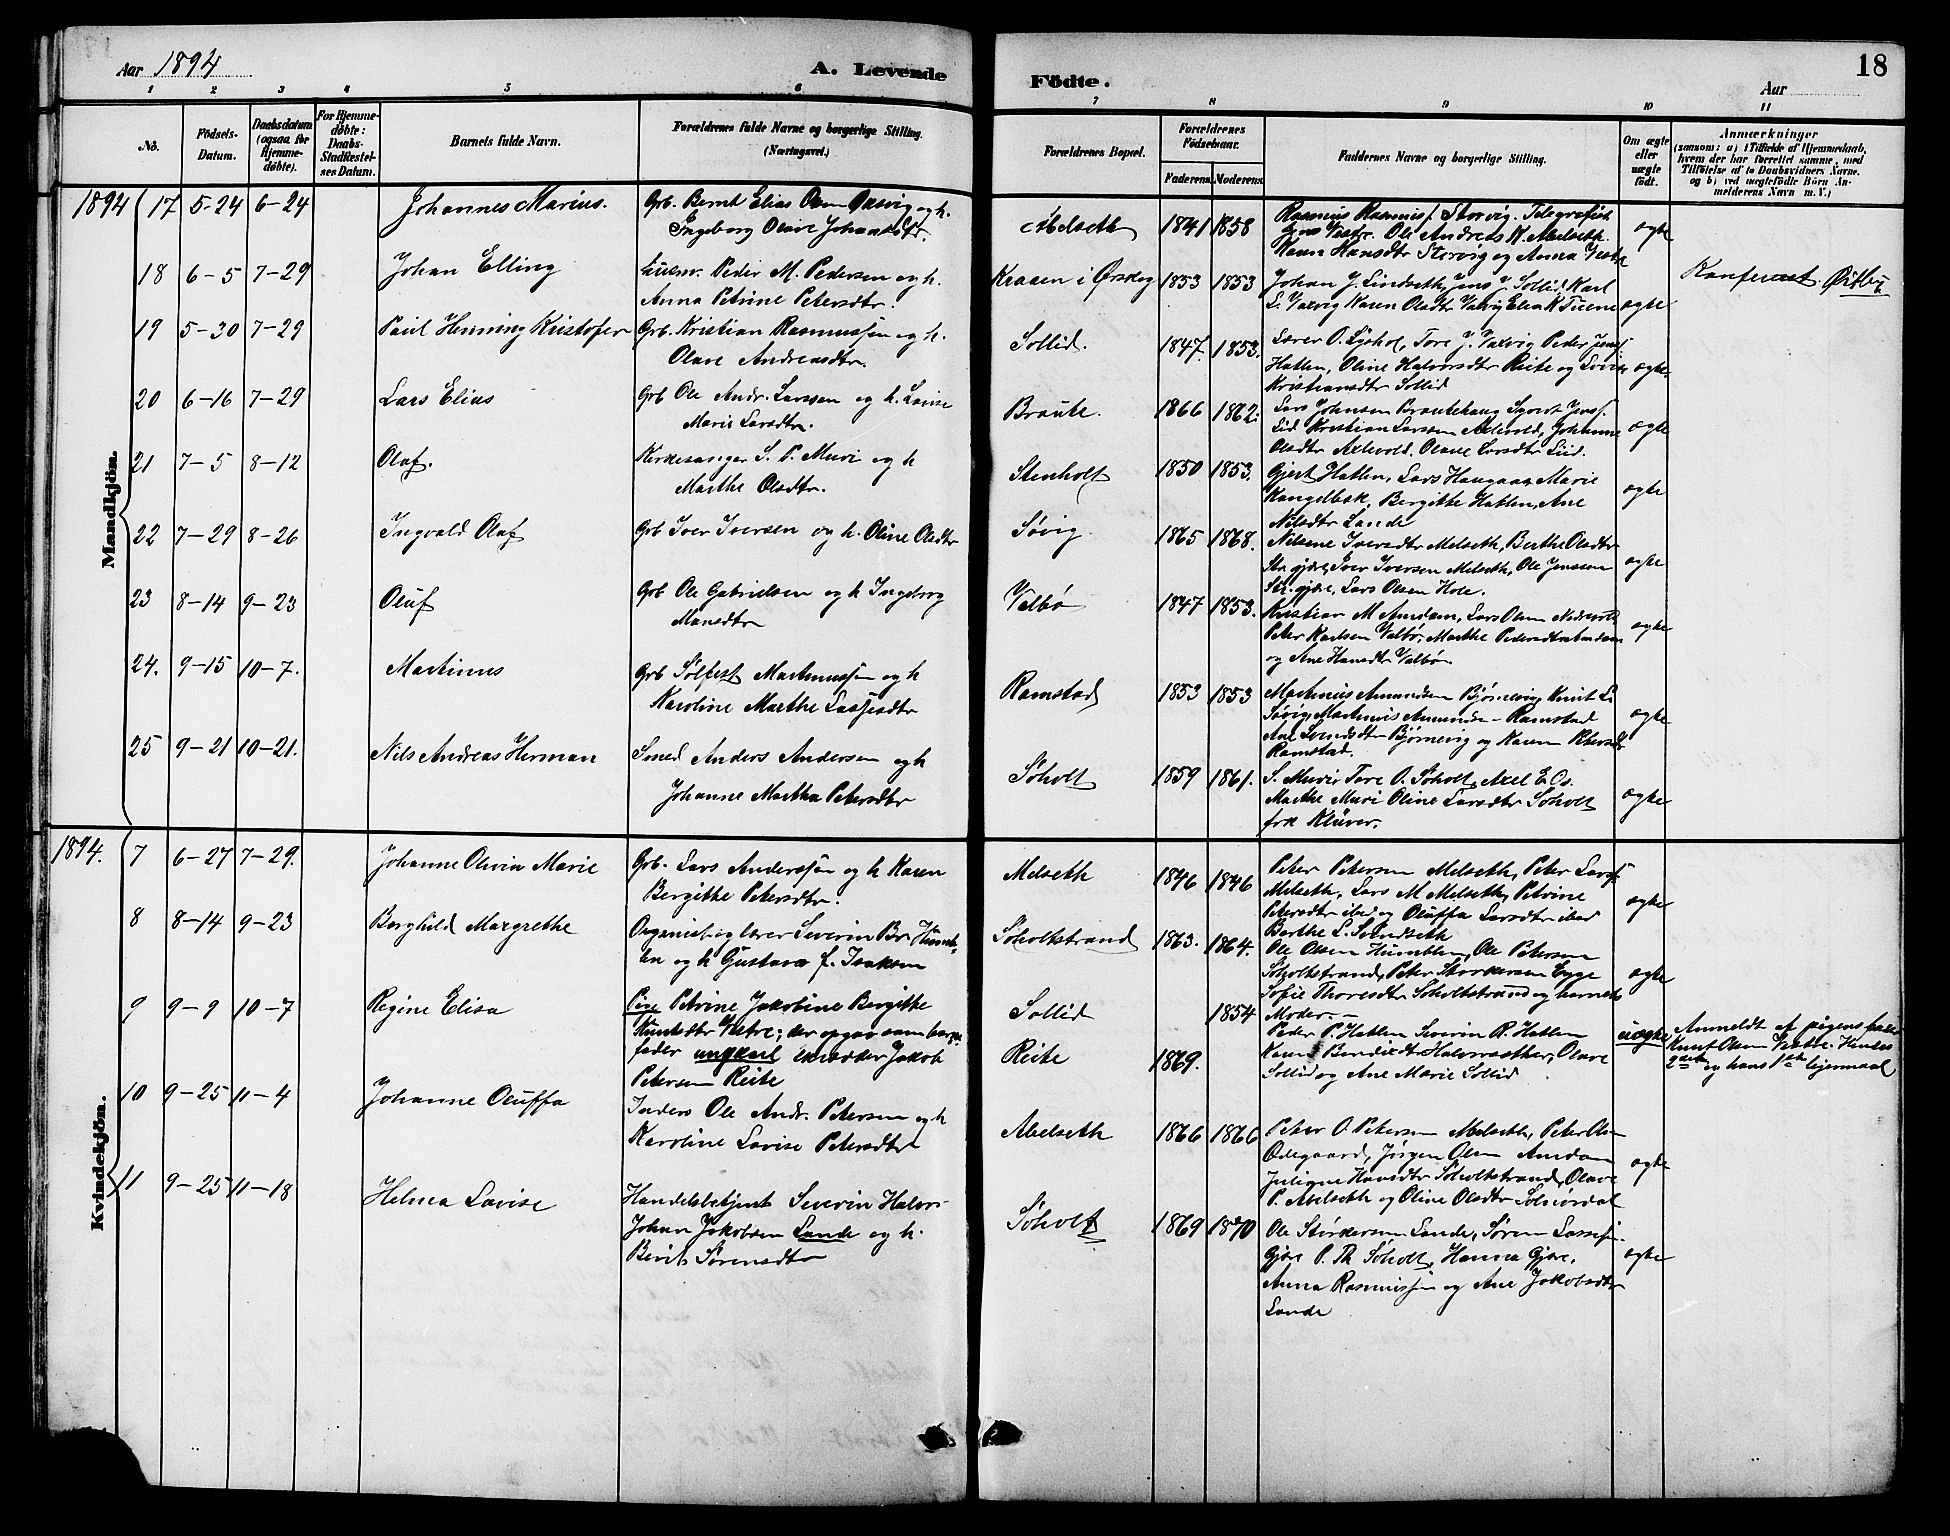 Aar 1894
A. Levende
Födte.
Aar
18
1 2 3 4 5 6 7 8 9 10 11
No.
Födsels-
Datum.
Daabsdatum
(ogsaa for
Hjemme-
döbte).
For Hjemme-
döbte:
Daabs-
Stadfæstel-
ses Datum.
Barnets fulde Navn.
Forældrenes fulde Navne og borgerlige Stilling.
(Næringsvei.)
Forældrenes Bopæl.
Forældrenes
Födselsaar.
Faderens. Moderens.
Faddernes Navne og borgerlige Stilling.
Om ægte
eller
uægte
födt.
Anmærkninger
(saasom: a) i Tilfælde af Hjemmedaab,
hvem der har forrettet samme, med
Tilföielse af to Daabsvidners Navne,
og b) ved uægtefödte Börn An-
melderens Navn m. V.)
Mandkjön.
1894 17 5-24 6-24 Johannes Marius. Grb. Bernt Elias Olsen og h.
Ingeborg Olave Johansdtr.
Abelseth 1841 1858 Rasmus Rasmuss. Storvig. Telegrafist
Jens Vestre Ole Andreas K. Abelseth
Karen Hansdtr Storvig og Anna Vestre
ægte
18 6-5 7-29 Johan Elling Husmr. Peder M. Pedersen og h.
Anna Petrine Petersdtr.
Kraaen i Ørskog 1853 1853 Johan J. Lindseth, Jens J. Sollid, Karl
L. Valvig Karen Olsdtr Valvig Elen K
ægte
19 5-30 7-29 Paul Henning Kristofer Grb. Kristian Rasmussen og h.
Olave Andreasdtr.
Sollid. 1847. 1853. Lærer O. Lysholt, Tore J. Valvig Peder Jens
Hatlen, Oline Halvorsdtr Reite og Lovise
Kristiansdtr Sollid
ægte
20 6-16 7-29 Lars Elias Grb Ole Andr. Larssen og h. Lovise
Marie Larsdtr.
Braute. 1866 1862. Lars Johnsen Brautehaug Sjurt Jenss.
Lid Kristian Larssen Axlevold, Johanne
Olsdtr Axlevold, Olave Larsdtr Liid.
ægte
21 7-5 8-12 Olaf. Kirkesanger S. P. Muri og h
Marthe Olsdtr.
Stenholt 1850 1853. Gjert Hatlen, Lars Haugaas, Marie
Bergitte Hatlen, Ane
Nilsdtr Lande
ægte
22 7-29 8-26 Ingvald Olaf Grb Iver Iversen og h. Oline Olsdtr
Søvig 1865 1868. Nilsine Iversdtr Melseth, Berthe Olsdtr
Iver Iversen Melseth, Ole Jenssen
Lars Olsen Hole.
ægte
23 8-14 9-23 Oluf Grb Ole Gabrielsen og h Ingeborg
Hansdtr
Valbø 1847 1853. Kristian M Amdam, Lars Olsen
Peter Karlsen Valbø, Marthe Pedersdtr Amdam
og Ane Hansdtr Valbø.
ægte
24. 9-15 10-7. Martinus Grb Sølfest Martinussen og h
Karoline Marthe Lassesdtr
Ramstad 1853 1853 Martinus Amundsen Bjørnevig, Knut L.
Søvig, Martinus Amunds- Ramstad
Ane Svendsdtr Bjørnevig og Karen Petersdtr
Ramstad.
ægte
25 9-21 10-21. Nils Andreas Herman Smed Anders Andersen og h
Johanne Martha Petersdtr
Søholt 1859 1861. S. Muri, Tore O. Søholt, Axel E. Os.
Marthe Muri Oline Larsdtr Søholt
frk Klüver.
ægte
Kvindekjön.
1894. 7 6-27 7-29. Johanne Olivin Marie Grb. Lars Anderssen og h Karen
Bergithe Petersdtr.
Melseth 1846 1846 Peter Petersen Melseth, Peter Larss.
Melseth, Lars M Melseth, Petrine
Petersdtr ibid og Oluffa Larsdtr ibid
ægte
8 8-14 9-23 Borghild Margrethe Organist og lærer Severin Br. Humb-
len og h Gustava f. Isaksen
Søholtstrand 1863. 1864. Berthe L. Svendseth
Ole Olsen Humblen, Ole Petersen
Søholtstrand, Peter Storkersen
Sofie Thoresdtr Søholtstrand og barnets
Moder.-
ægte
9 9-9 10-7 Regine Elisa Pige Petrine Jakobine Bergitte
Knutsdtr Vestre; der opgav som barne-
fader ungkarl Jakob
Petersen Reite
Sollid 1854
Reite 1869.
Peder P. Hatlen Severin R. Hatlen
Karen Olave
Sollid og Ane Marie Sollid
uægte
Anmeldt af pigens fader
Knut Olsen Vestre. Hendes
2det og hans 1ste leiermaal
10 9-25 11-4 Johanne Oluffa Inders Ole Andr. Petersen og h
Karoline Lovise Petersdtr
Abelseth 1866 1866 Peter O. Petersen Melseth, Peter Olsen
Ødegaard, Jørgen Olsen Amdam
Juligne Hansdtr Søholtstrand, Olave
P. Abelseth og Oline Olsdtr Solnørdal
ægte
11 9-25 11-18 Helma Lovise Handelsbetjent Severin Halvor
Johan Jakobsen Lande og h.
Berit Sørensdtr
Søholt 1869 1870 Ole Storkersen Lande, Søren Lassesen
Gjøre P. Th Søholt, Hanna Gjøre,
Anna Rasmussen og Ane Jakobsdtr
Lande
ægte